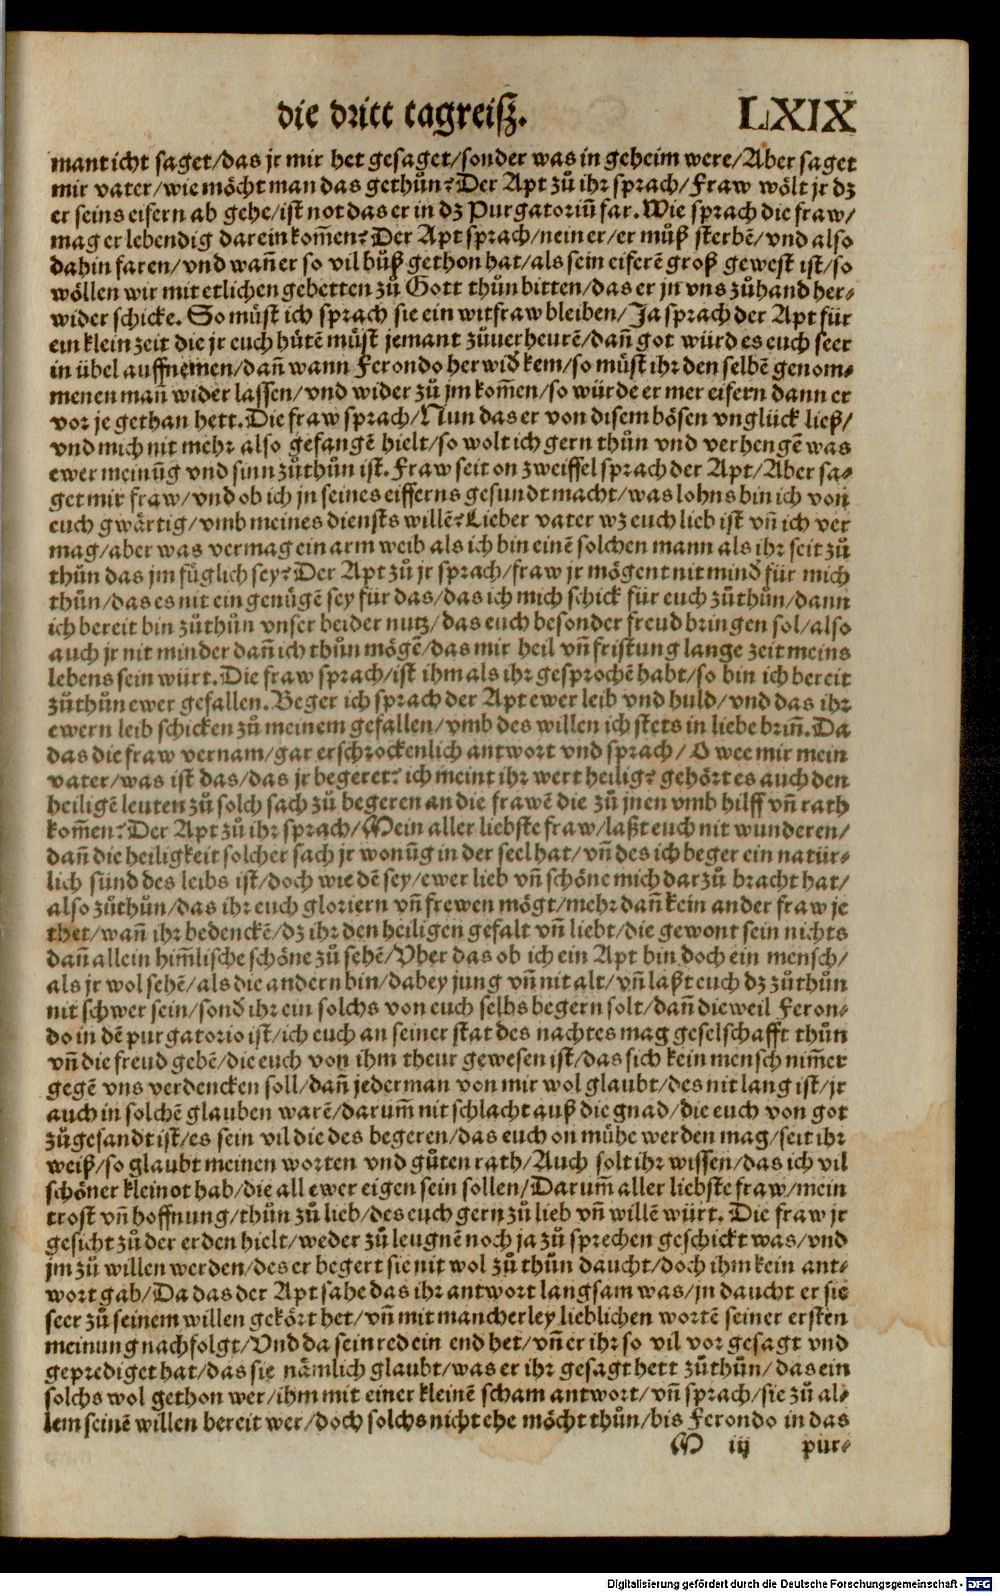 die dritt tagreiſz. LXIX
mant icht saget/das jr mir het gesaget/sonder was in geheim were/Aber saget
mir vater/wie möcht man das gethůn? Der Apt zů ihr sprach/Fraw wölt jr dz
er seins eisern ab gehe/ist not das er in dz Purgatoriū far. Wie sprach die fraw/
mag er lebendig darein kom̄en? Der Apt sprach/nein er/er můß sterbē/vnd also
dahin faren/vnd wañ er so vil bůß gethon hat/als sein eiferē groß gewest ist/so
wöllen wir mit etlichen gebetten zů Gott thůn bitten/das er jn vns zůhand her-
wider schicke. So můst ich sprach sie ein witfraw bleiben/Ja sprach der Apt für
ein klein zeit die jr euch hůtē můst jemant zůuerheurē/dañ got würd es euch seer
in übel auffnemen/dañ wann Ferondo her wid' kem/so můst ihr den selbē genom-
menen man wider lassen/vnd wider zů jm kom̄en/so würde er mer eifern dann er
vor je gethan hett. Die fraw sprach/Nun das er von disem bösen vnglück ließ/
vnd mich nit mehr also gefangē hielt/so wolt ich gern thůn vnd verhengē was
ewer meinūg vnd sinn zůthůn ist. Fraw seit on zweiffel sprach der Apt/Aber sa-
get mir fraw/vnd ob ich jn seines eifferns gesundt macht/was lohns bin ich von
euch gwärtig/vmb meines diensts willē? Lieber vater wz euch lieb ist vñ ich ver
mag/aber was vermag ein arm weib als ich bin einē solchen mann als ihr seit zů
thůn das jm füglich sey? Der Apt zů jr sprach/fraw jr mögent nit mind' für mich
thůn/das es nit ein genůgē sey für das/das ich mich schick für euch zůthůn/dann
ich bereit bin zůthůn vnser beider nutz/das euch besonder freud bringen sol/also
auch jr nit minder dañ ich thůn mögē/das mir heil vñ fristung lange zeit meins
lebens sein würt. Die fraw sprach/ist ihm als ihr gesprochē habt/so bin ich bereit
zůthůn ewer gefallen. Beger ich sprach der Apt ewer leib vnd huld/vnd das ihr
ewern leib schicken zů meinem gefallen/vmb des willen ich stets in liebe briñ. Da
das die fraw vernam/gar erschrockenlich antwort vnd sprach/O wee mir mein
vater/was ist das/das jr begeret? ich meint ihr wert heilig? gehört es auch den
heiligē leuten zů solch sach zů begeren an die frawē die zů jnen vmb hilff vñ rath
kom̄en? Der Apt zů ihr sprach/Mein aller liebste fraw/laßt euch nit wunderen/
dañ die heiligkeit solcher sach jr wonūg in der seel hat/vñ des ich beger ein natür-
lich sünd des leibs ist/doch wie dē sey/ewer lieb vñ schöne mich darzů bracht hat/
also zůthůn/das ihr euch gloriern vñ frewen mögt/mehr dañ kein ander fraw je
thet/wañ ihr bedenckē/dz ihr den heiligen gefalt vñ liebt/die gewont sein nichts
dañ allein him̄lische schöne zů sehē/Vber das ob ich ein Apt bin doch ein mensch/
als jr wol sehē/als die andern bin/dabey jung vñ nit alt/vñ laßt euch dz zůthůn
nit schwer sein/sond' ihr ein solchs von euch selbs begern solt/dañ dieweil Feron-
do in dē purgatorio ist/ich euch an seiner stat des nachtes mag geselschafft thůn
vñ die freud gebē/die euch von ihm theur gewesen ist/das sich kein mensch nim̄er
gegē vns verdencken soll/dañ jederman von mir wol glaubt/des nit lang ist/jr
auch in solchē glauben warē/darum̄ nit schlacht auß die gnad/die euch von got
zůgesandt ist/es sein vil die des begeren/das euch on mühe werden mag/seit ihr
weiß/so glaubt meinen worten vnd gůten rath/Auch solt ihr wissen/das ich vil
schöner kleinot hab/die all ewer eigen sein sollen/Darum̄ aller liebste fraw/mein
trost vñ hoffnung/thůn zů lieb/des euch gern zů lieb vñ willē würt. Die fraw jr
gesicht zů der erden hielt/weder zů leugnē noch ja zů sprechen geschickt was/vnd
jm zů willen werden/des er begert sie nit wol zů thůn daucht/doch ihm kein ant-
wort gab/Da das der Apt sahe das ihr antwort langsam was/jn daucht er sie
seer zů seinem willen gekört het/vñ mit mancherley lieblichen wortē seiner ersten
meinung nachfolgt/Vnd da sein red ein end het/vñ er ihr so vil vor gesagt vnd
geprediget hat/das sie nämlich glaubt/was er ihr gesagt hett zůthůn/das ein
solchs wol gethon wer/ihm mit einer kleinē scham antwort/vñ sprach/sie zů al-
lem seinē willen bereit wer/doch solchs nicht ehe möcht thůn/bis Ferondo in das
M iij pur-
Digitalisierung gefördert durch die Deutsche Forschungsgemeinschaft - DFG